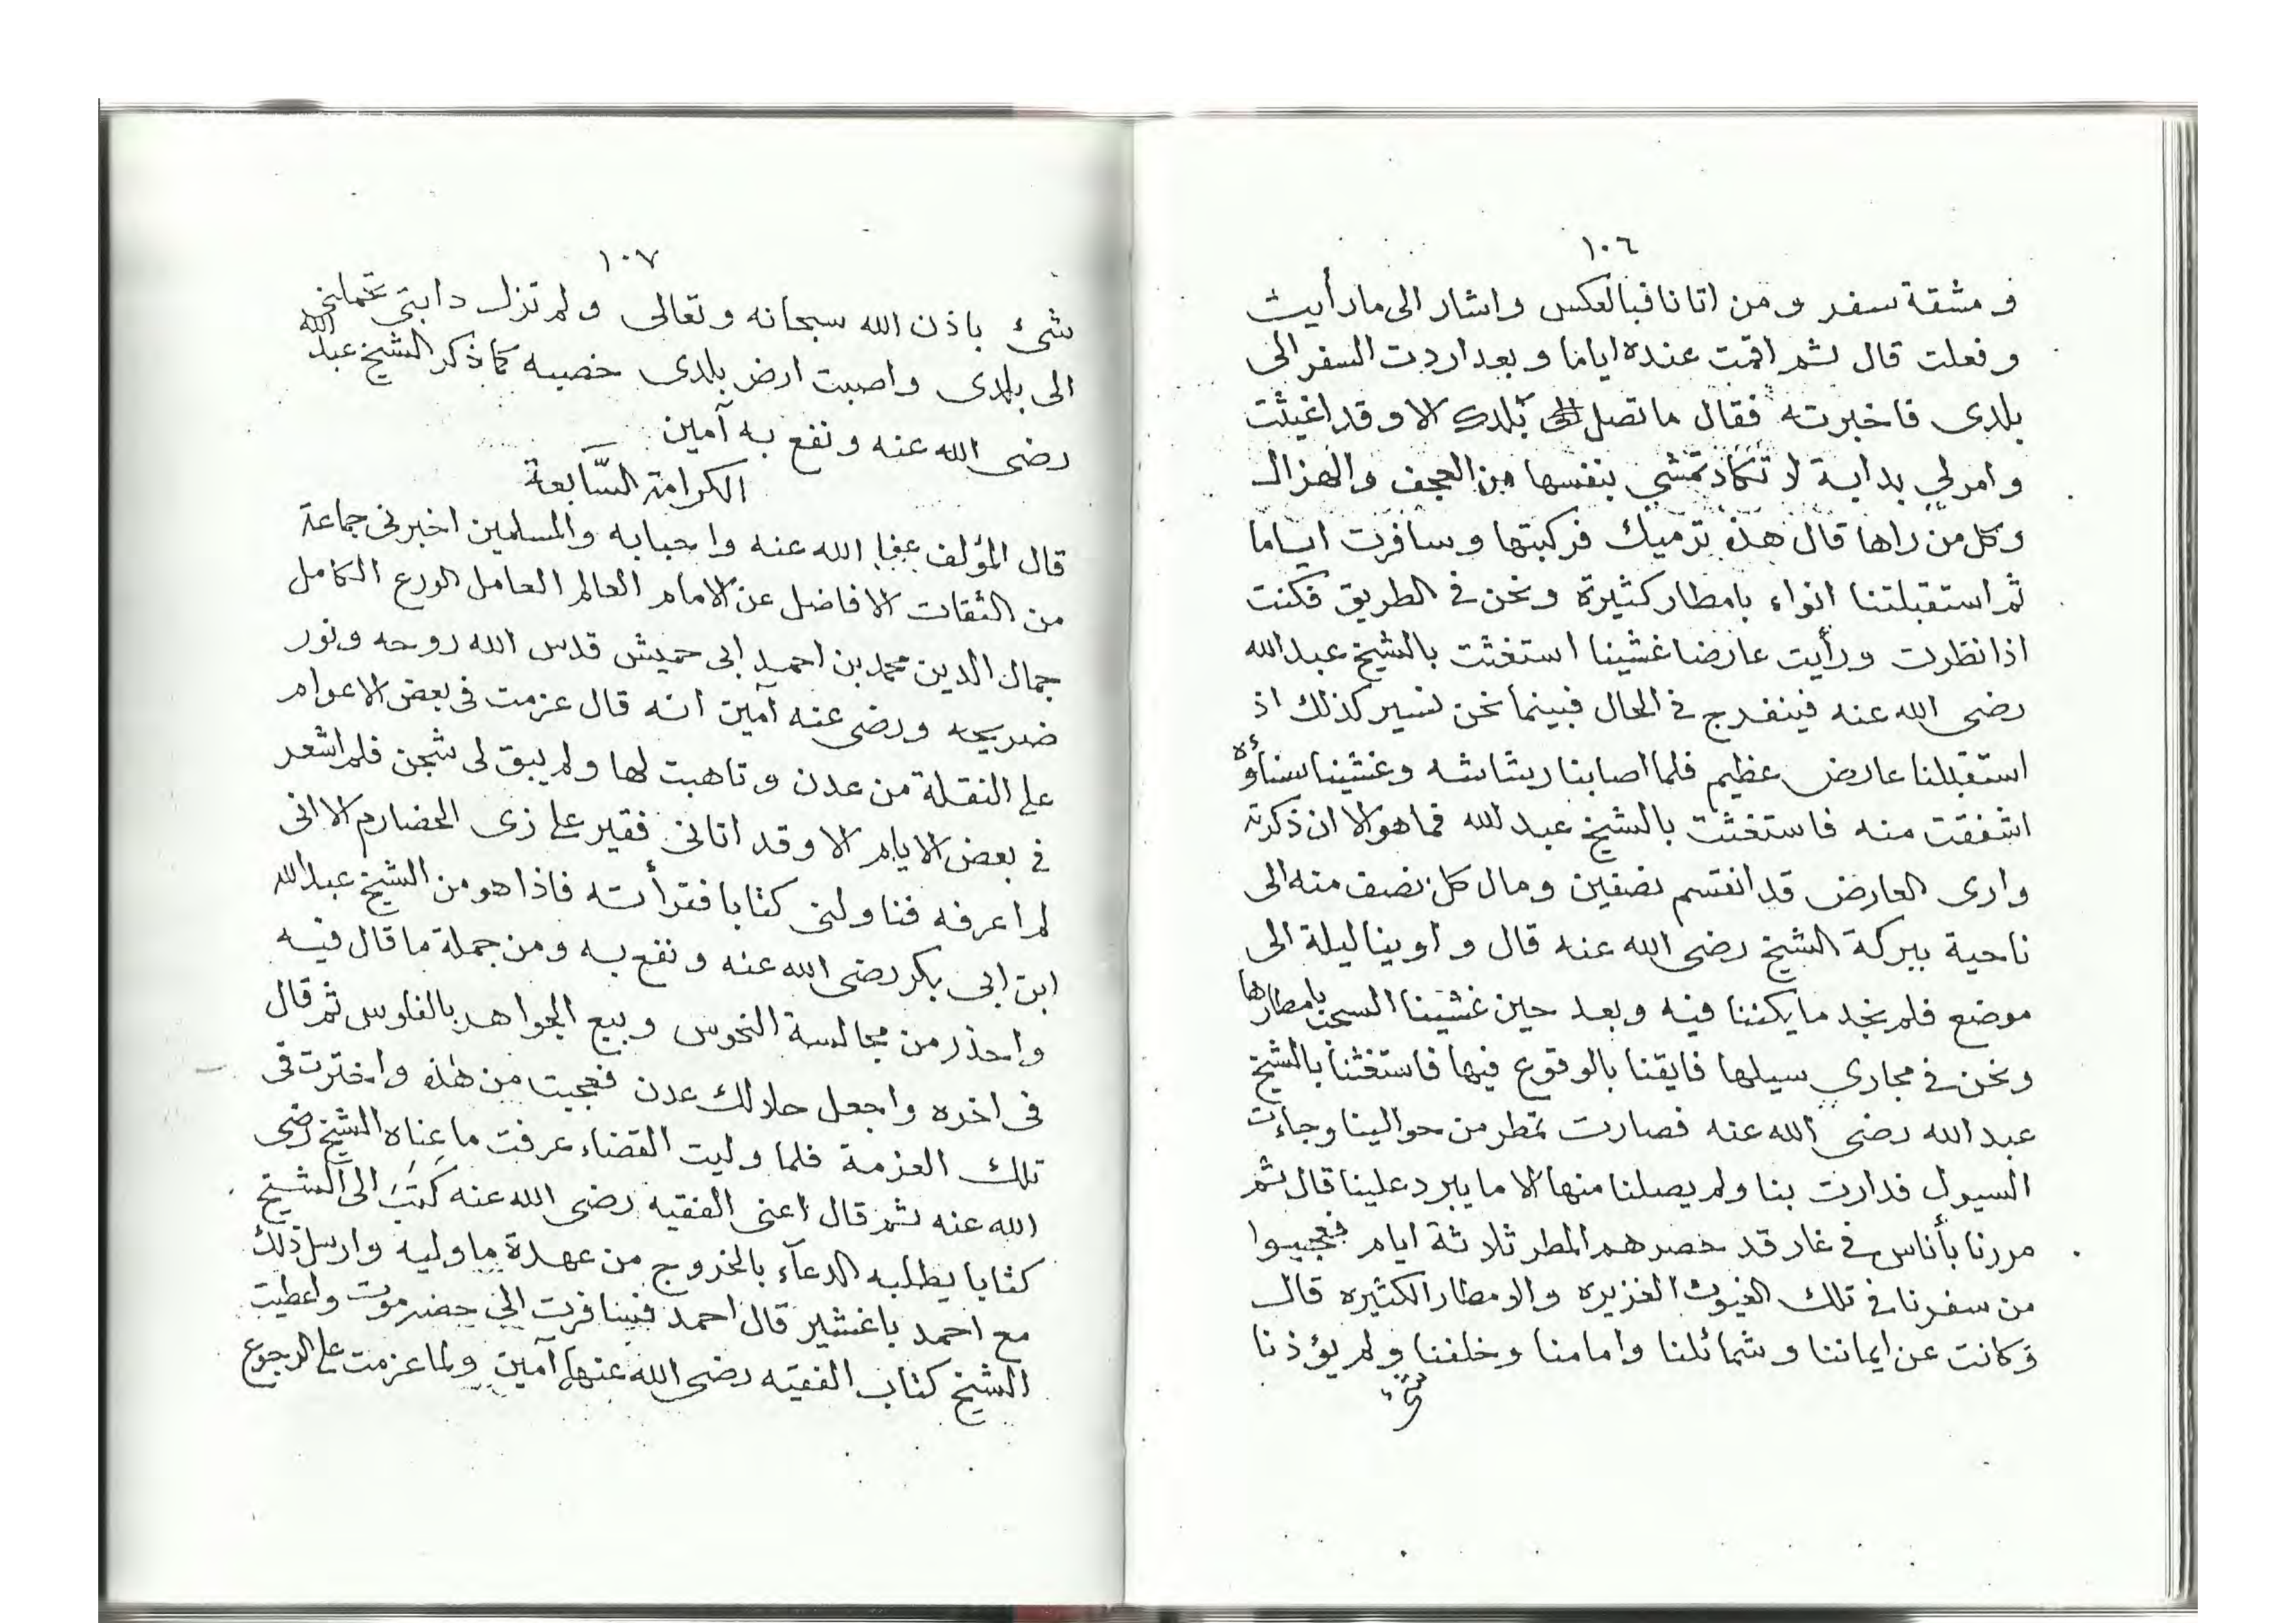 ١٠٦
ومشقة سفر ومن اتانا فبالعكس واشار الى ما رأيت
وفعلت قال ثم اقمت عنده اياما وبعد اردت السفر الى
بلدى فاخبرته فقال ما تصل الى بلدك الا وقد اغيثت
وامر لي بدابة لا تكاد تمشي بنفسها من العجف والهزال
وكل من راها قال هذه ترميك فركبتها وسافرت اياما
ثم استقبلتنا انواء بامطار كثيرة ونحن في الطريق فكنت
اذا نظرت ورأيت عارضا غشينا استغثت بالشيخ عبد الله
رضى الله عنه فينفرج في الحال فبينما نحن نسير كذلك اذ
استقبلنا عارض عظيم فلما اصابنا رشاشه وغشينا سناؤه
اشفقت منه فاستغثت بالشيخ عبد الله فما هو الا ان ذكرته
وارى العارض قد انقسم نصفين ومال كل نصف منه الى
ناحية ببركة الشيخ رضى الله عنه قال واوينا ليلة الى
موضع فلم نجد ما يكننا فيه وبعد حين غشينا السحب بامطارها
ونحن في مجاري سيلها فايقنا بالوقوع فيها فاستغثنا بالشيخ
عبد الله رضى الله عنه فصارت تمطر من حوالينا وجاءت
السيول فدارت بنا ولم يصلنا منها الا ما يبرد علينا قال ثم
مررنا بأناس في غار قد حصرهم المطر ثلاثة ايام فعجبوا
من سفرنا في تلك الغيوث الغزيره والامطار الكثيره قال
وكانت عن ايماننا وشمائلنا وامامنا وخلفنا ولم يؤذنا
شئ
١٠٧
شئ باذن الله سبحانه وتعالى ولم تزل دابتي تحملني
الى بلدى واصبت ارض بلدى خصيبه كما ذكر الشيخ عبد الله
رضى الله عنه ونفع به آمين
الكرامة السّابعة
قال المؤلف عفا الله عنه واحبابه والمسلمين اخبرنى جماعة
من الثقات الافاضل عن الامام العالم العامل الورع الكامل
جمال الدين محمد بن احمد ابى حميش قدس الله روحه ونور
ضريحه ورضى عنه آمين انه قال عزمت فى بعض الاعوام
على النقلة من عدن وتاهبت لها ولم يبق لى شجن فلم اشعر
في بعض الايام الا وقد اتانى فقير على زى الحضارم الا انى
لم اعرفه فناولنى كتابا فقرأته فاذا هو من الشيخ عبد الله
ابن ابى بكر رضى الله عنه ونفع به ومن جملة ما قال فيه
واحذر من مجالسة النحوس وبيع الجواهر بالفلوس ثم قال
فى اخره واجعل حلالك عدن فعجبت من هذه واخترت فى
تلك العزمة فلما وليت القضاء عرفت ما عناه الشيخ رضى
الله عنه ثم قال اعنى الفقيه رضى الله عنه كَتَبَ الى الشيخ
كتابا يطلبه الدعآء بالخروج من عهدة ما وليه وارسل ذلك
مع احمد باغشير قال احمد فسافرت الى حضرموت واعطيت
الشيخ كتاب الفقيه رضى الله عنها آمين ولما عزمت على الرجوع